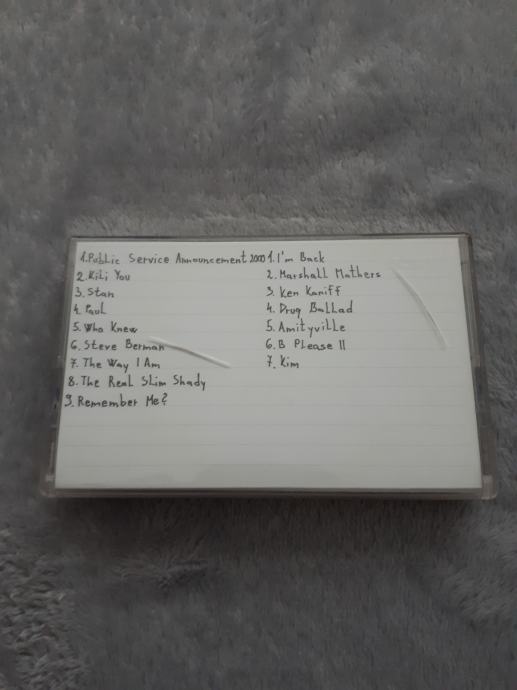 1.Public Service Announcement 2000
2.Kill You
3.Stan
4.Paul
5.Who Knew
6.Steve Berman
7.The Way I Am
8.The Real Slim Shady
9.Remember Me?
1.I'm Back
2.Marshall Mathers
3.Ken Kaniff
4.Drug Ballad
5.Amityville
6.B Please II
7.Kim